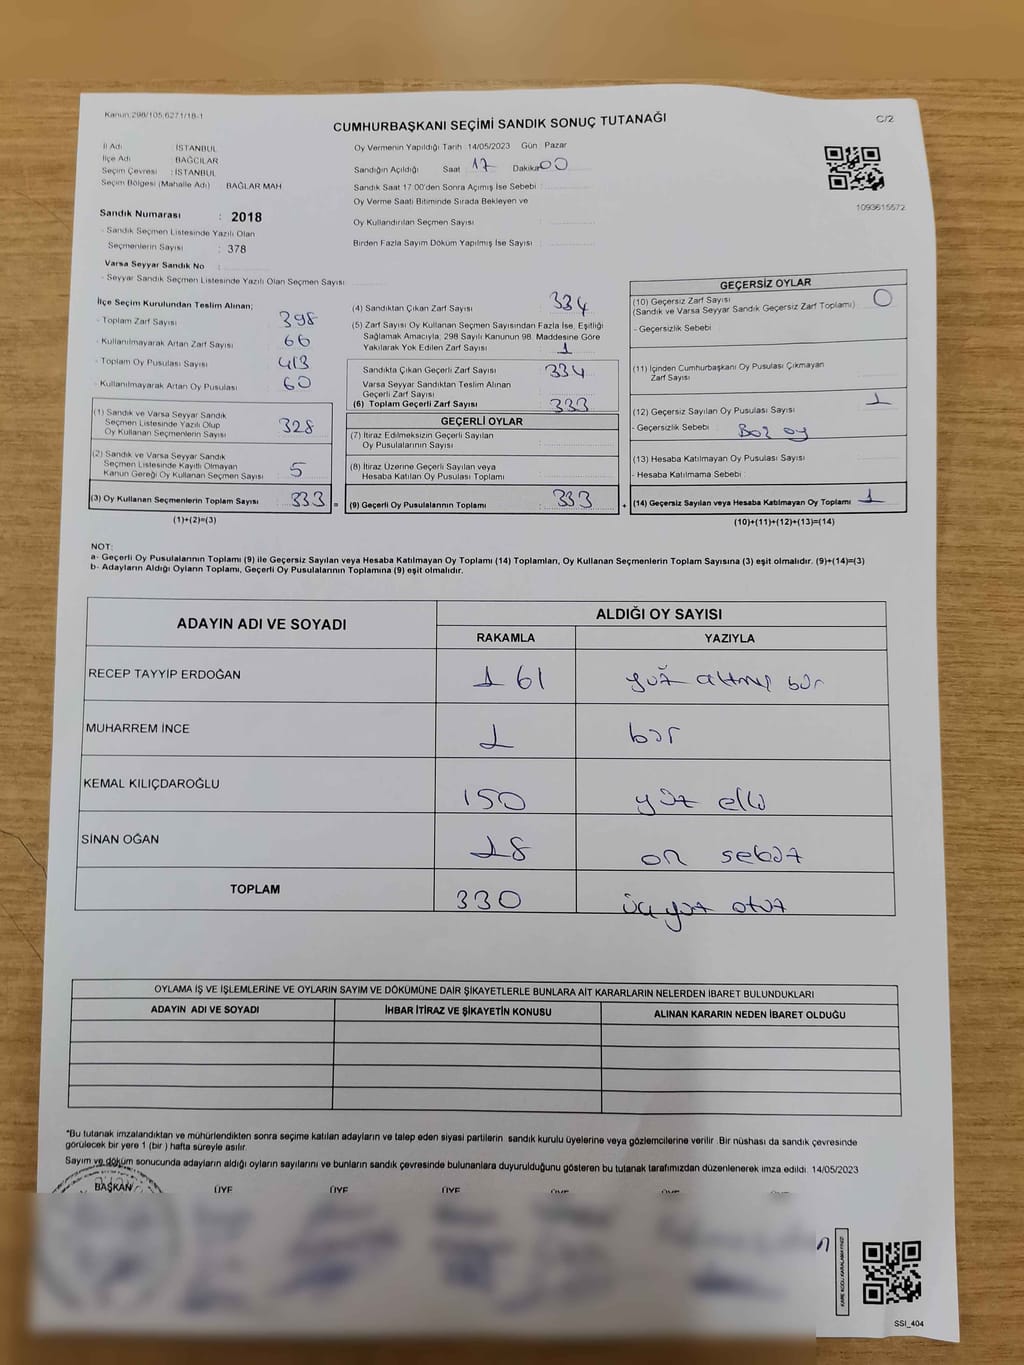 Kanun:298/105,6271/18-1
CUMHURBAŞKANI SEÇİMİ SANDIK SONUÇ TUTANAĞI
C/2
İl Adı : İSTANBUL
İlçe Adı : BAĞCILAR
Seçim Çevresi : İSTANBUL
Seçim Bölgesi (Mahalle Adı) : BAĞLAR MAH
Sandık Numarası : 2018
- Sandık Seçmen Listesinde Yazılı Olan
Seçmenlerin Sayısı : 378
Varsa Seyyar Sandık No :
- Seyyar Sandık Seçmen Listesinde Yazılı Olan Seçmen Sayısı:
Oy Vermenin Yapıldığı Tarih :14/05/2023 Gün : Pazar
Sandığın Açıldığı Saat : 17 Dakika: 00
Sandık Saat 17:00'den Sonra Açımış İse Sebebi :
Oy Verme Saati Bitiminde Sırada Bekleyen ve
Oy Kullandırılan Seçmen Sayısı :
Birden Fazla Sayım Döküm Yapılmış İse Sayısı :
1093615572
İlçe Seçim Kurulundan Teslim Alınan;
- Toplam Zarf Sayısı : 398
- Kullanılmayarak Artan Zarf Sayısı : 66
- Toplam Oy Pusulası Sayısı : 413
- Kullanılmayarak Artan Oy Pusulası : 60
(1) Sandık ve Varsa Seyyar Sandık
Seçmen Listesinde Yazılı Olup
Oy Kullanan Seçmenlerin Sayısı : 328
(2) Sandık ve Varsa Seyyar Sandık
Seçmen Listesinde Kayıtlı Olmayan
Kanun Gereği Oy Kullanan Seçmen Sayısı : 5
(3) Oy Kullanan Seçmenlerin Toplam Sayısı : 333 =
(1)+(2)=(3)
(4) Sandıktan Çıkan Zarf Sayısı : 334
(5) Zarf Sayısı Oy Kullanan Seçmen Sayısından Fazla İse, Eşitliği
Sağlamak Amacıyla, 298 Sayılı Kanunun 98. Maddesine Göre
Yakılarak Yok Edilen Zarf Sayısı : 1
Sandıkta Çıkan Geçerli Zarf Sayısı : 334
Varsa Seyyar Sandıktan Teslim Alınan
Geçerli Zarf Sayısı :
(6) Toplam Geçerli Zarf Sayısı : 333
GEÇERLİ OYLAR
(7) İtiraz Edilmeksizin Geçerli Sayılan
Oy Pusulalarının Sayısı :
(8) İtiraz Üzerine Geçerli Sayılan veya
Hesaba Katılan Oy Pusulası Toplamı :
(9) Geçerli Oy Pusulalarının Toplamı : 333 +
GEÇERSİZ OYLAR
(10) Geçersiz Zarf Sayısı : 0
(Sandık ve Varsa Seyyar Sandık Geçersiz Zarf Toplamı)
- Geçersizlik Sebebi :
(11) İçinden Cumhurbaşkanı Oy Pusulası Çıkmayan
Zarf Sayısı :
(12) Geçersiz Sayılan Oy Pusulası Sayısı : 1
- Geçersizlik Sebebi : Boş oy
(13) Hesaba Katılmayan Oy Pusulası Sayısı :
- Hesaba Katılmama Sebebi :
(14) Geçersiz Sayılan veya Hesaba Katılmayan Oy Toplamı : 1
(10)+(11)+(12)+(13)=(14)
NOT:
a- Geçerli Oy Pusulalarının Toplamı (9) ile Geçersiz Sayılan veya Hesaba Katılmayan Oy Toplamı (14) Toplamları, Oy Kullanan Seçmenlerin Toplam Sayısına (3) eşit olmalıdır. (9)+(14)=(3)
b- Adayların Aldığı Oyların Toplamı, Geçerli Oy Pusulalarının Toplamına (9) eşit olmalıdır.
ADAYIN ADI VE SOYADI ALDIĞI OY SAYISI
RAKAMLA YAZIYLA
RECEP TAYYİP ERDOĞAN 161 yüz altmış bir
MUHARREM İNCE 1 bir
KEMAL KILIÇDAROĞLU 150 yüz elli
SİNAN OĞAN 18 on sekiz
TOPLAM 330 üç yüz otuz
OYLAMA İŞ VE İŞLEMLERİNE VE OYLARIN SAYIM VE DÖKÜMÜNE DAİR ŞİKAYETLERLE BUNLARA AİT KARARLARIN NELERDEN İBARET BULUNDUKLARI
ADAYIN ADI VE SOYADI İHBAR İTİRAZ VE ŞİKAYETİN KONUSU ALINAN KARARIN NEDEN İBARET OLDUĞU
*Bu tutanak imzalandıktan ve mühürlendikten sonra seçime katılan adayların ve talep eden siyasi partilerin sandık kurulu üyelerine veya gözlemcilerine verilir .Bir nüshası da sandık çevresinde
görülecek bir yere 1 (bir ) hafta süreyle asılır.
Sayım ve döküm sonucunda adayların aldığı oyların sayılarını ve bunların sandık çevresinde bulunanlara duyurulduğunu gösteren bu tutanak tarafımızdan düzenlenerek imza edildi. 14/05/2023
BAŞKAN ÜYE ÜYE ÜYE ÜYE ÜYE ÜYE
KARE KODU KARALAMAYINIZ!
SSI_404